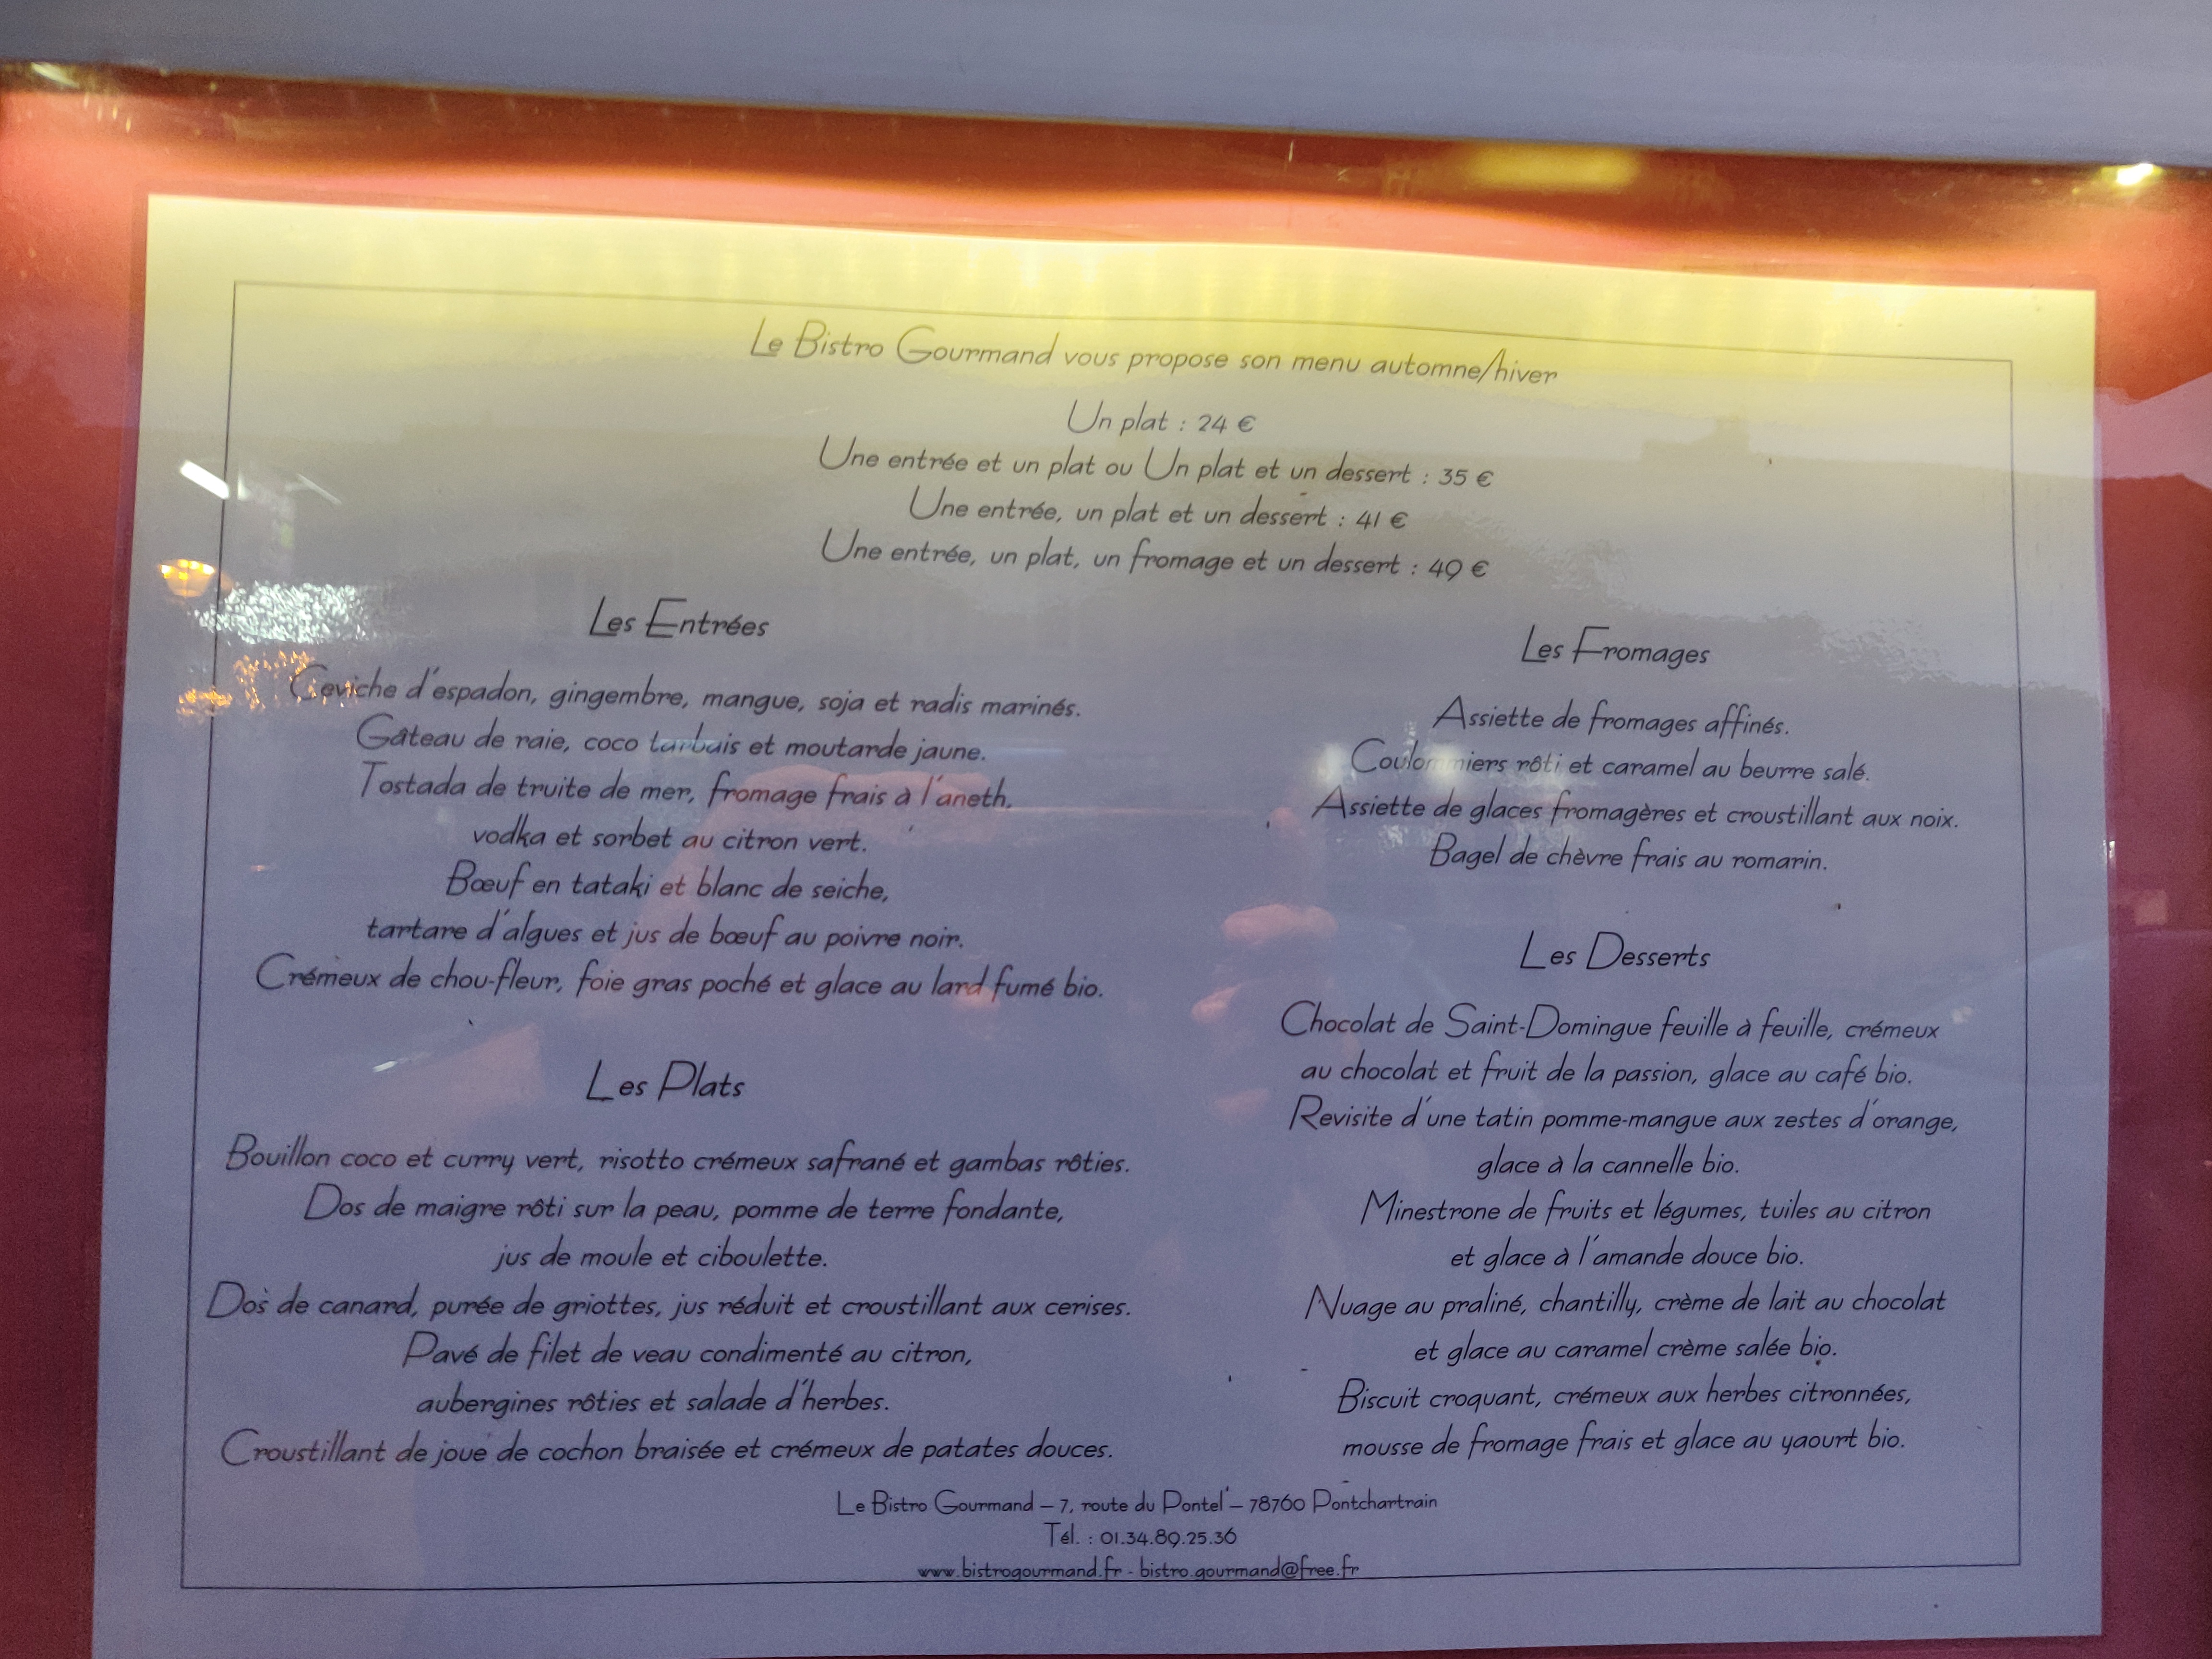 Le Bistro Gourmand vous propose son menu automne/hiver
Un plat : 24 €
Une entrée et un plat ou Un plat et un dessert : 35 €
Une entrée, un plat et un dessert : 41 €
Une entrée, un plat, un fromage et un dessert : 49 €
Les Entrées
Ceviche d'espadon, gingembre, mangue, soja et radis marinés.
Gâteau de raie, coco tarbais et moutarde jaune.
Tostada de truite de mer, fromage frais à l'aneth,
vodka et sorbet au citron vert.
Bœuf en tataki et blanc de seiche,
tartare d'algues et jus de bœuf au poivre noir.
Crémeux de chou-fleur, foie gras poché et glace au lard fumé bio.
Les Plats
Bouillon coco et curry vert, risotto crémeux safrané et gambas rôties.
Dos de maigre rôti sur la peau, pomme de terre fondante,
jus de moule et ciboulette.
Dos de canard, purée de griottes, jus réduit et croustillant aux cerises.
Pavé de filet de veau condimenté au citron,
aubergines rôties et salade d'herbes.
Croustillant de joue de cochon braisée et crémeux de patates douces.
Les Fromages
Assiette de fromages affinés.
Coulommiers rôti et caramel au beurre salé.
Assiette de glaces fromagères et croustillant aux noix.
Bagel de chèvre frais au romarin.
Les Desserts
Chocolat de Saint-Domingue feuille à feuille, crémeux
au chocolat et fruit de la passion, glace au café bio.
Revisite d'une tatin pomme-mangue aux zestes d'orange,
glace à la cannelle bio.
Minestrone de fruits et légumes, tuiles au citron
et glace à l'amande douce bio.
Nuage au praliné, chantilly, crème de lait au chocolat
et glace au caramel crème salée bio.
Biscuit croquant, crémeux aux herbes citronnées,
mousse de fromage frais et glace au yaourt bio.
Le Bistro Gourmand – 7, route du Pontel – 78760 Pontchartrain
Tél. : 01.34.89.25.36
www.bistrogourmand.fr - bistro.gourmand@free.fr